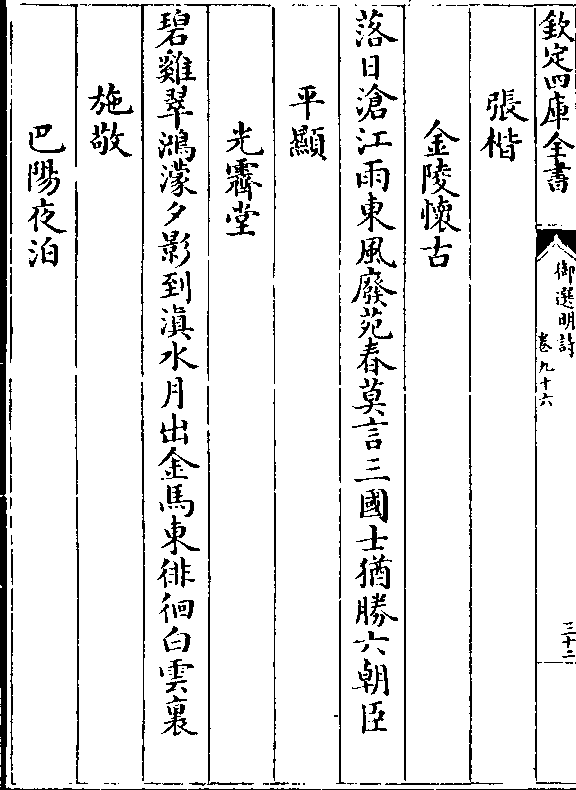 欽定四庫全書
御選明詩
卷九十六
三十二
張楷
金陵懷古
落日滄江雨東風廢苑春莫言三國士猶勝六朝臣
平顯
光霽堂
碧雞翠鴻濛夕影到滇水月出金馬東徘徊白雲裏
施敬
巴陽夜泊